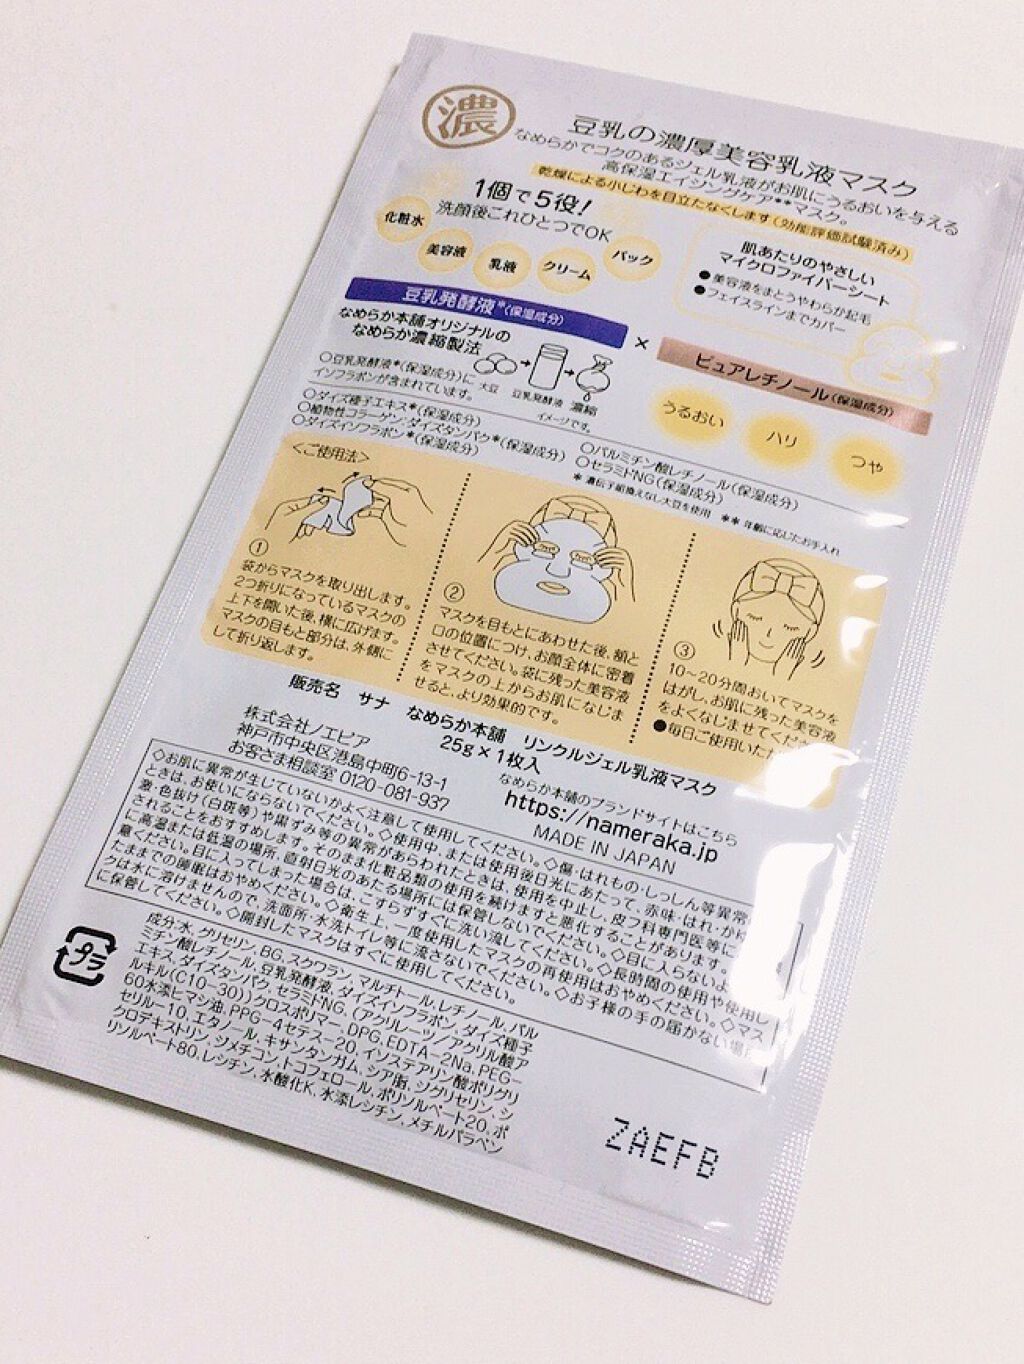 濃
豆乳の濃厚美容乳液マスク
なめらかでコクのあるジェル乳液がお肌にうるおいを与える
高保湿エイジングケア**マスク。
乾燥による小じわを目立たなくします(効能評価試験済み)
1個で5役!
洗顔後これひとつでOK
化粧水
美容液
乳液
クリーム
パック
肌あたりのやさしい
マイクロファイバーシート
●美容液をまとうやわらか起毛
●フェイスラインまでカバー
豆乳発酵液*(保湿成分)
×
ピュアレチノール(保湿成分)
なめらか本舗オリジナルの
なめらか濃縮製法
○豆乳発酵液*(保湿成分)に
イソフラボンが含まれています。
大豆
豆乳発酵液
濃縮
イメージです。
うるおい
ハリ
つや
○ダイズ種子エキス*(保湿成分)
○植物性コラーゲン:ダイズタンパク*(保湿成分)
○ダイズイソフラボン*(保湿成分)
○パルミチン酸レチノール(保湿成分)
○セラミドNG(保湿成分)
* 遺伝子組換えなし大豆を使用 ** 年齢に応じたお手入れ
<ご使用法>
①
袋からマスクを取り出します。
2つ折りになっているマスクの
上下を開いた後、横に広げます。
マスクの目もと部分は、外側に
して折り返します。
②
マスクを目もとにあわせた後、額と
口の位置につけ、お顔全体に密着
させてください。袋に残った美容液
をマスクの上からお肌になじま
せると、より効果的です。
③
10~20分間おいてマスクを
はがし、お肌に残った美容液
をよくなじませてくだ
●毎日ご使用いただ
販売名 サナ なめらか本舗 リンクルジェル乳液マスク
25g×1枚入
株式会社ノエビア
神戸市中央区港島中町6-13-1
お客さま相談室 0120-081-937
なめらか本舗のブランドサイトはこちら
https://nameraka.jp
MADE IN JAPAN
◇お肌に異常が生じていないかよく注意して使用してください。◇傷・はれもの・しっしん等異常の
ときは、お使いにならないでください。◇使用中、または使用後日光にあたって、赤味・はれ・かゆ
激・色抜け(白斑等)や黒ずみ等の異常があらわれたときは、使用を中止し、皮フ科専門医等に
されることをおすすめします。そのまま化粧品類の使用を続けますと悪化することがあります。
に高温または低温の場所、直射日光のあたる場所には保管しないでください。◇目に入らないよ
意ください。目に入ってしまった場合は、こすらずすぐに洗い流してください。◇長時間の使用や使用し
たままでの睡眠はおやめください。◇衛生上、一度使用したマスクの再使用はおやめください。◇マス
クは水に溶けませんので、洗面所・水洗トイレ等に流さないでください。◇お子様の手の届かない場所
に保管してください。◇開封したマスクはすぐに使用してください。
プラ
成分:水、グリセリン、BG、スクワラン、マルチトール、レチノール、パル
ミチン酸レチノール、豆乳発酵液、ダイズイソフラボン、ダイズ種子
エキス、ダイズタンパク、セラミドNG、(アクリレーツ/アクリル酸ア
ルキル(C10-30))クロスポリマー、DPG、EDTA-2Na、PEG-
60水添ヒマシ油、PPG-4セテス-20、イソステアリン酸ポリグリ
セリル-10、エタノール、キサンタンガム、シア脂、ジグリセリン、シ
クロデキストリン、ジメチコン、トコフェロール、ポリソルベート20、ポ
リソルベート80、レシチン、水酸化K、水添レシチン、メチルパラベン
ZAEFB